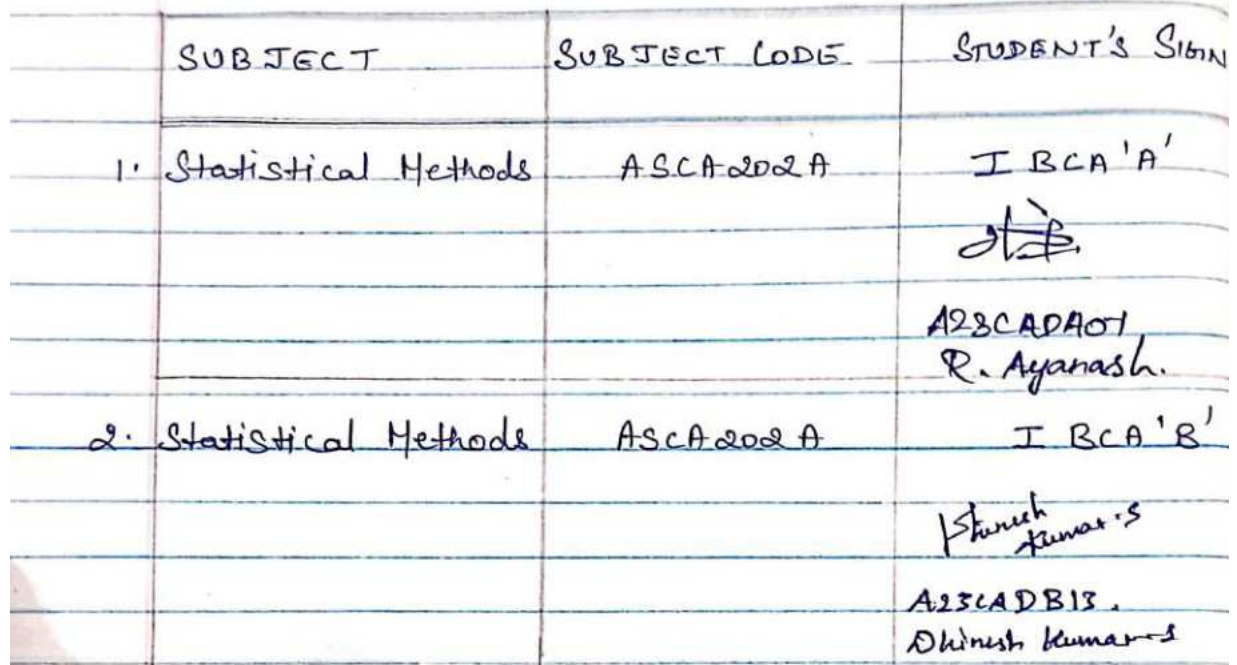 SUBJECT SUBJECT CODE STUDENT'S SIGN
1. Statistical Methods ASCA202A I BCA 'A'
A23CADA01
R. Ayanash.
2. Statistical Methods ASCA202A I BCA 'B'
Kumar.S
A23CADB13.
Dhinesh Kumar.S